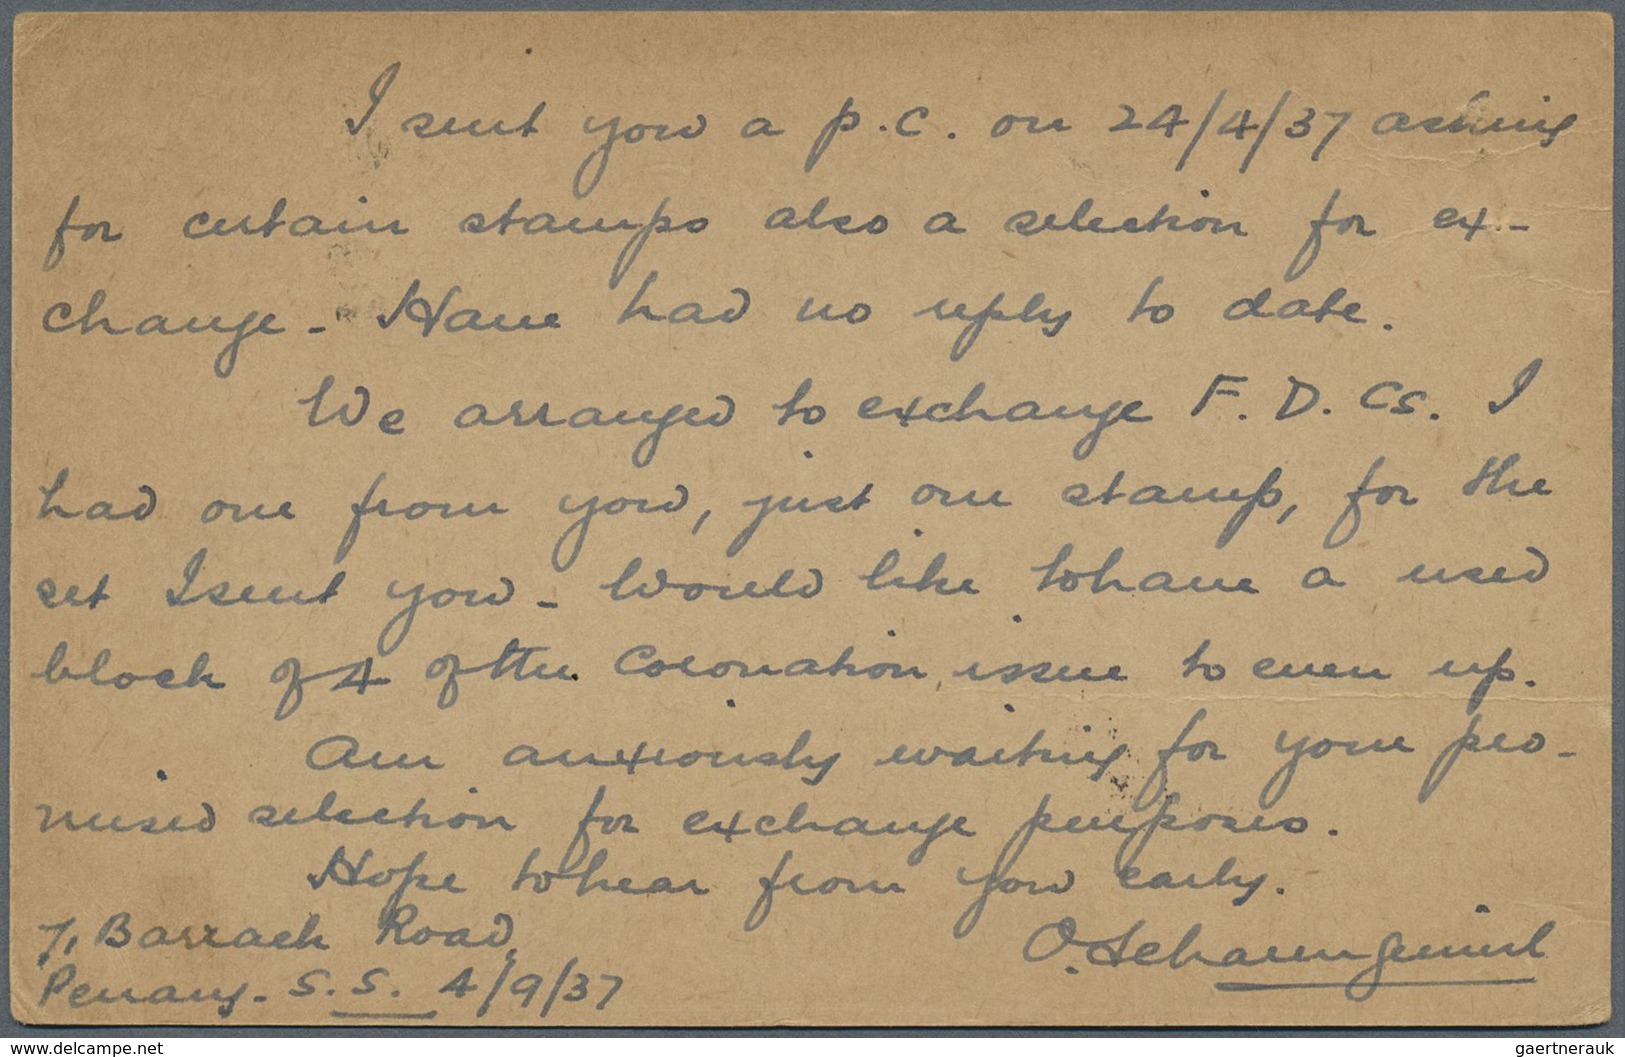 I sent you a p.c. on 24/4/37 asking
for certain stamps also a selection for ex-
change - Have had no reply to date.
We arranged to exchange F. D. Cs. I
had one from you, just one stamp, for the
set I sent you - Would like to have a used
block of 4 of the Coronation issue to even up.
Am anxiously waiting for your pro-
mised selection for exchange purposes.
Hope to hear from you early.
7, Barrack Road,
Penang - S.S. 4/9/37
O.
www.delcampe.net
gaertnerauk